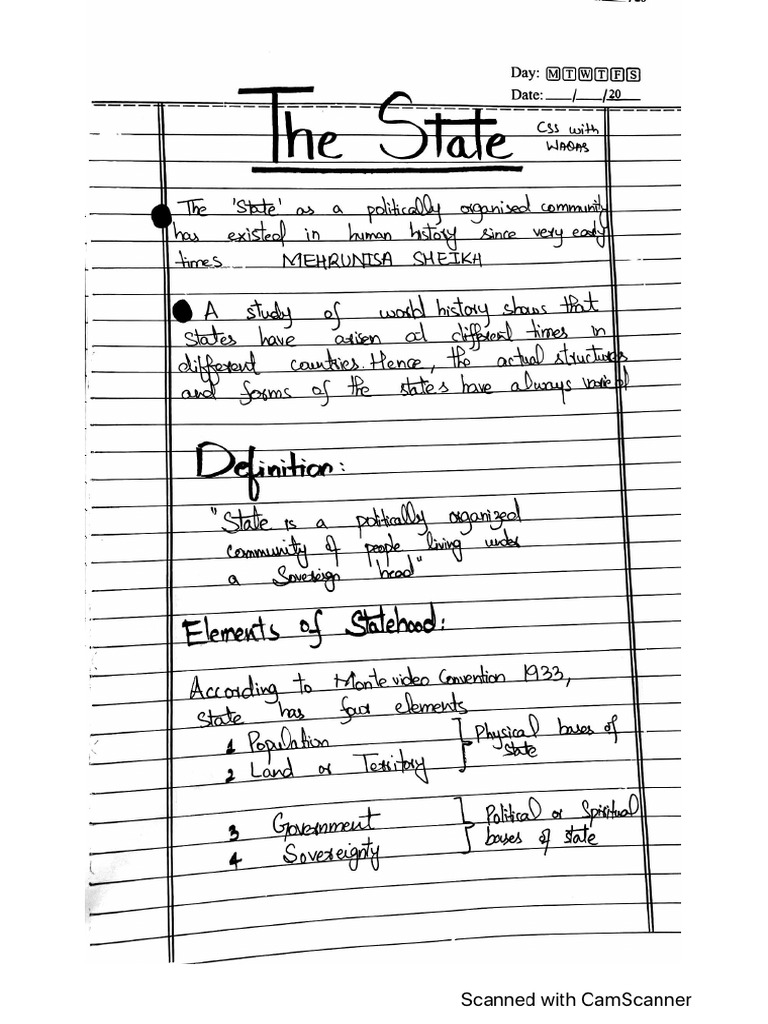 Day: M T W T F S
Date: ___/___/20___
The State
CSS with
WAQAS
The 'State' as a politically organised community
has existed in human history since very early
times MEHRUNISA SHEIKH
A study of world history shows that
States have arisen at different times in
different countries. Hence, the actual structures
and forms of the states have always varied
Definition:
"State is a politically organized
community of people living under
a Sovereign head"
Elements of Statehood:
According to Montevideo Convention 1933,
State has four elements
1 Population
2 Land or Territory
Physical bases of
state
3 Government
4 Sovereignty
Political or Spiritual
bases of state
Scanned with CamScanner